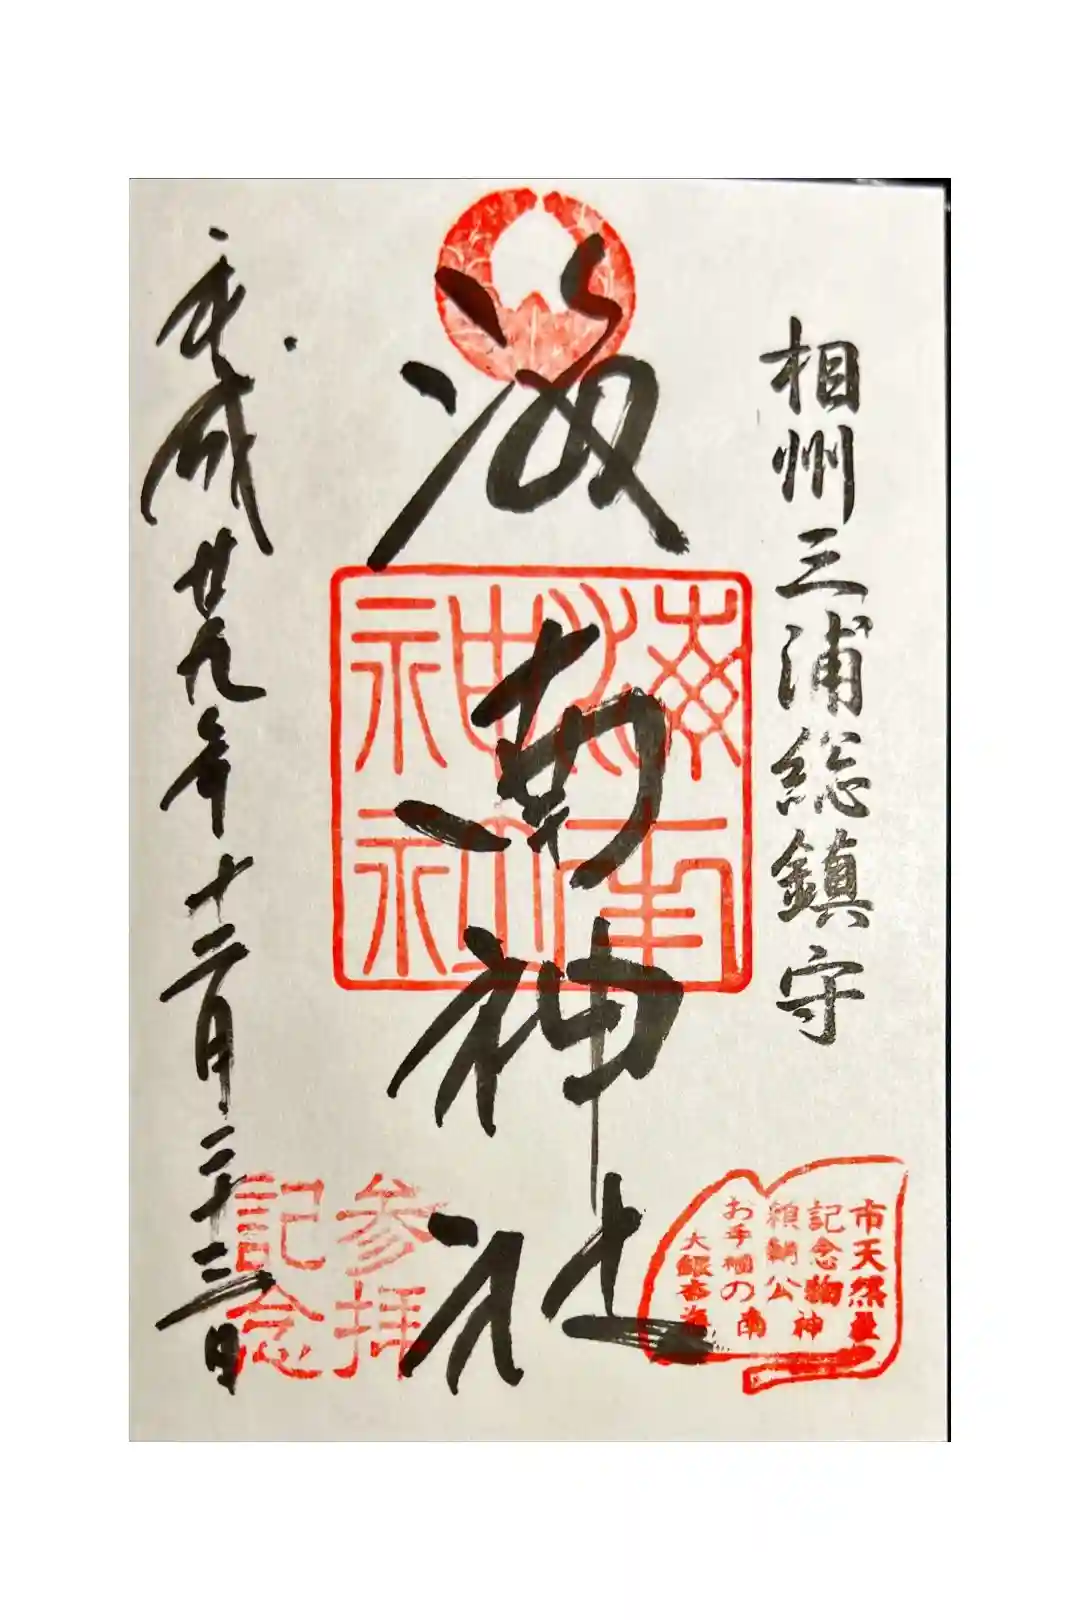 相州三浦総鎮守
海南神社
平成廿九年十二月二十三日
海南
神社
参拝
記念
市天然
記念物
頼朝公
お手植の
大銀杏
海南神社